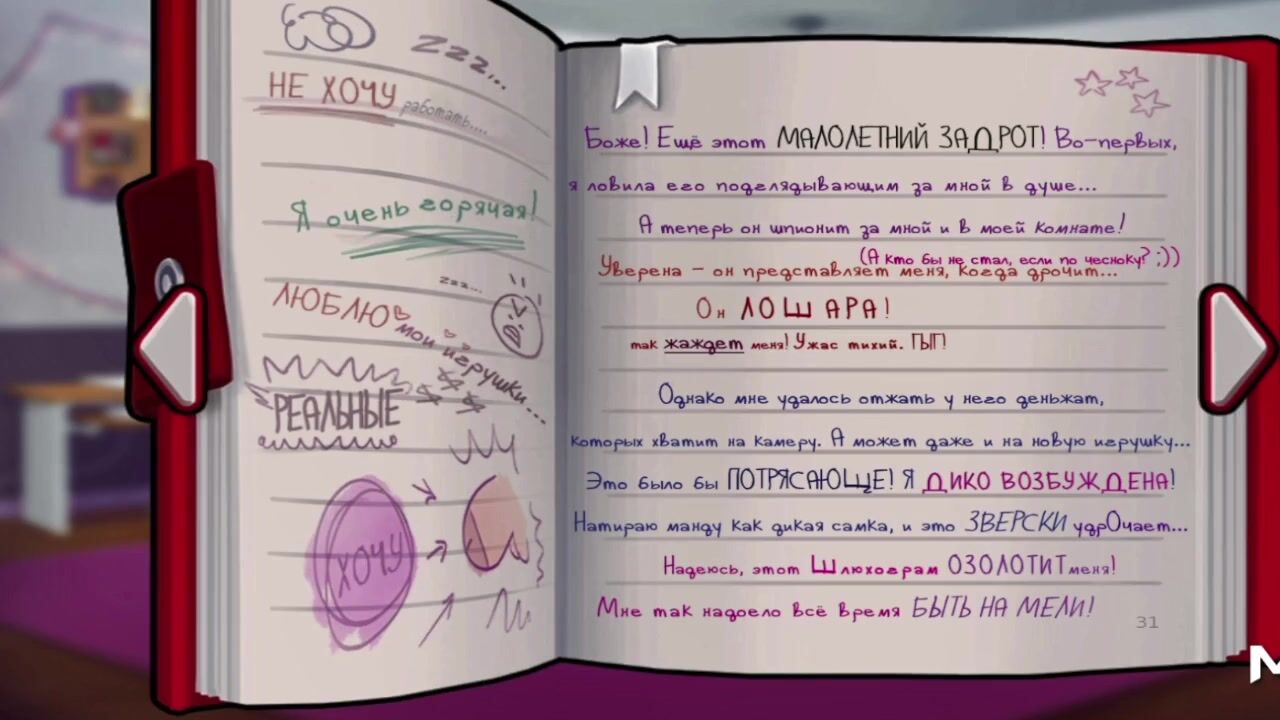 zzz...
НЕ ХОЧУ работать....
Я очень горячая!
zzz...
ЛЮБЛЮ мои игрушки...
РЕАЛЬНЫЕ
ХОЧУ
Боже! Ещё этот МАЛОЛЕТНИЙ ЗАДРОТ! Во-первых,
я ловила его подглядывающим за мной в душе...
А теперь он шпионит за мной и в моей комнате!
(А кто бы не стал, если по чесноку? ;))
Уверена – он представляет меня, когда дрочит...
Он ЛОШАРА!
так жаждет меня! Ужас тихий. ГЫГ!
Однако мне удалось отжать у него деньжат,
которых хватит на камеру. А может даже и на новую игрушку...
Это было бы ПОТРЯСАЮЩЕ! Я ДИКО ВОЗБУЖДЕНА!
Натираю манду как дикая самка, и это ЗВЕРСКИ удрОчает...
Надеюсь, этот Шлюхограм ОЗОЛОТИТ меня!
Мне так надоело всё время БЫТЬ НА МЕЛИ!
31